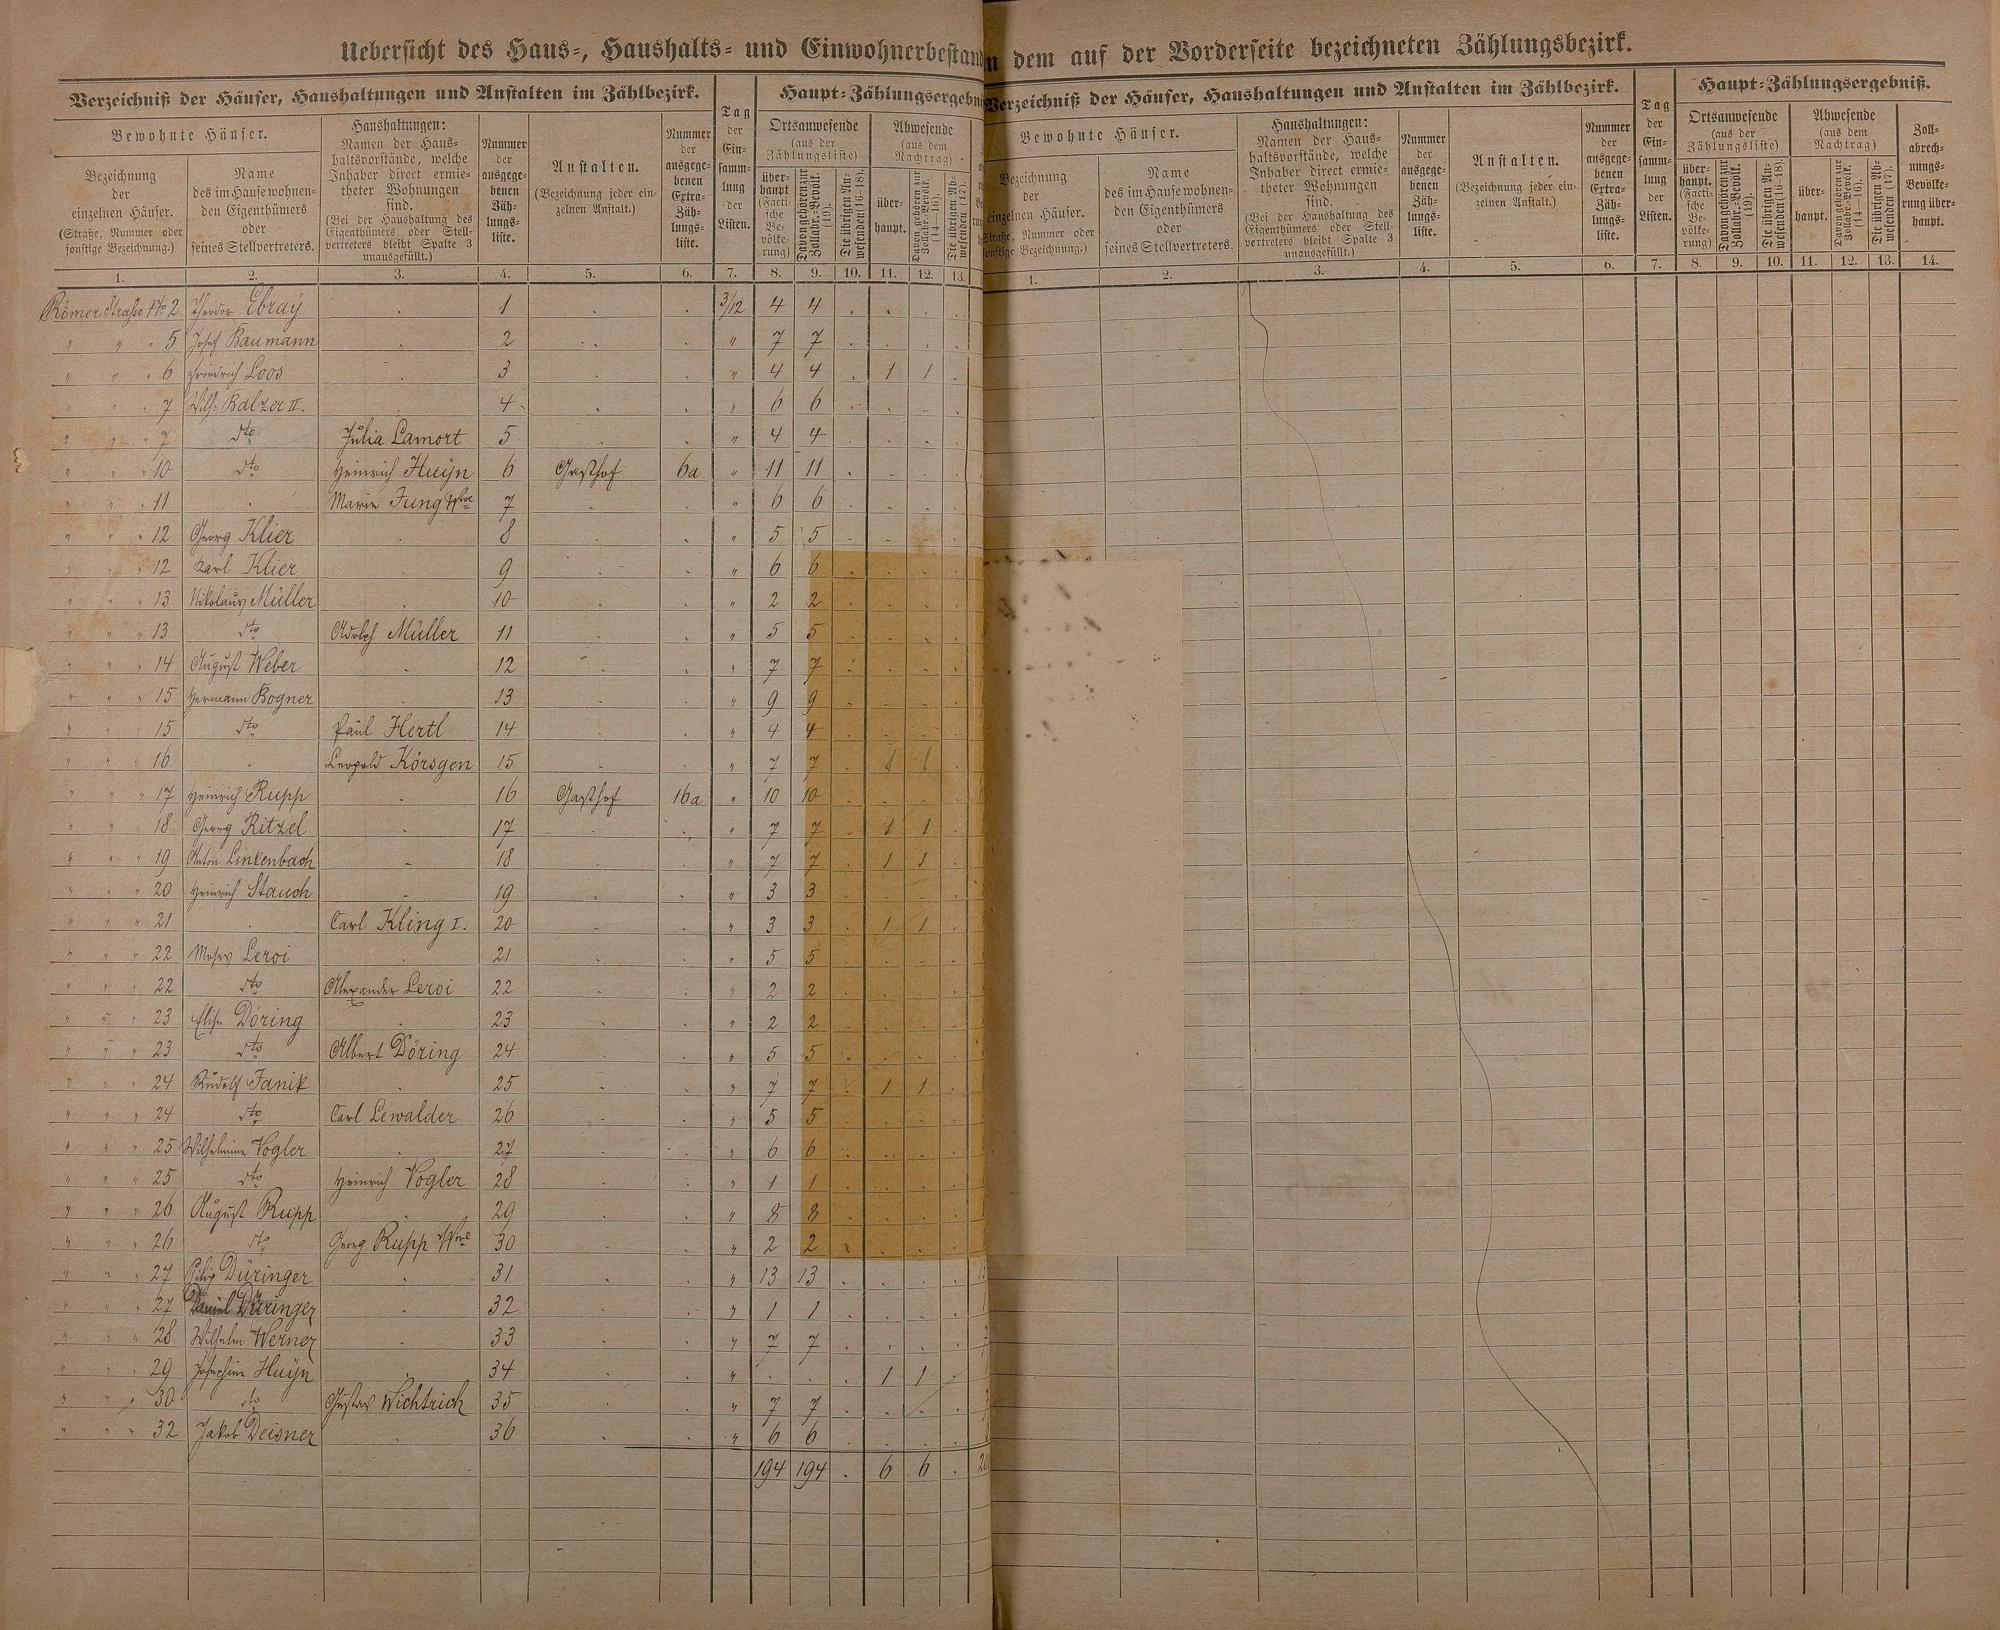 Uebersicht des Haus-, Haushalts- und Einwohnerbestan
n dem auf der Vorderseite bezeichneten Zählungsbezirk.
Verzeichniß der Häuser, Haushaltungen und Anstalten im Zählbezirk.
Bewohnte Häuser.
Bezeichnung
der
einzelnen Häuser.
(Straße, Nummer oder
sonstige Bezeichnung.)
Name
des im Hause wohnen-
den Eigenthümers
oder
seines Stellvertreters.
Haushaltungen:
Namen der Haus-
haltsvorstände, welche
Inhaber direct ermie-
theter Wohnungen
sind.
(Bei der Haushaltung des
Eigenthümers oder Stell-
vertreters bleibt Spalte 3
unausgefüllt.)
Nummer
der
ausgege-
benen
Zäh-
lungs-
liste.
Anstalten.
(Bezeichnung jeder ein-
zelnen Anstalt.)
Nummer
der
ausgege-
benen
Extra-
Zäh-
lungs-
liste.
Tag
der
Ein-
samm-
lung
der
Listen.
Haupt-Zählungsergebni
Ortsanwesende
(aus der
Zählungsliste)
über-
haupt
(Facti-
sche
Be-
völke-
rung)
Davon gehören zur
Zollabr.-Bevölk.
(19).
Die übrigen An-
wesenden (16–18).
Abwesende
(aus dem
Nachtrag)
über-
haupt.
Davon gehören zur
Zollabr.-Bevölk.
(14–16).
Die übrigen Ab-
wesenden (17).
1. 2. 3. 4. 5. 6. 7. 8. 9. 10. 11. 12. 13.
Römer Straße No 2 Theodor Ebray . 1 . . 3/12 4 4 . . . .
" " " 5 Josef Baumann . 2 . . " 7 7 . . . .
" " " 6 Friedrich Loos . 3 . . " 4 4 . 1 1 .
" " " 7 Wilh. Balzer II. . 4 . . " 6 6 . . . .
" " " 7 dto Julia Lamort 5 . . " 4 4 . . . .
" " " 10 dto Heinrich Huyn 6 Gasthof 6a " 11 11 . . . .
" " " 11 . Marie Jung Wwe 7 . . " 6 6 . . . .
" " " 12 Georg Klier . 8 . . " 5 5 . . . .
" " " 12 Karl Klier . 9 . . " 6 6 . . . .
" " " 13 Nikolaus Müller . 10 . . " 2 2 . . . .
" " " 13 dto Adolph Müller 11 . . " 5 5 . . . .
" " " 14 August Weber . 12 . . " 7 7 . . . .
" " " 15 Hermann Bogner . 13 . . " 9 9 . . . .
" " " 15 dto Paul Hertl 14 . . " 4 4 . . . .
" " " 16 . Leopold Körsgen 15 . . " 7 7 . 1 1 .
" " " 17 Heinrich Rupp . 16 Gasthof 16a " 10 10 . . . .
" " " 18 Georg Ritzel . 17 . . " 7 7 . 1 1 .
" " " 19 Anton Linkenbach . 18 . . " 7 7 . 1 1 .
" " " 20 Heinrich Stauch . 19 . . " 3 3 . . . .
" " " 21 . Carl Kling I. 20 . . " 3 3 . 1 1 .
" " " 22 Moses Leroi . 21 . . " 5 5 . . . .
" " " 22 dto Alexander Leroi 22 . . " 2 2 . . . .
" " " 23 Elise Döring . 23 . . " 2 2 . . . .
" " " 23 dto Albert Döring 24 . . " 5 5 . . . .
" " " 24 Rudolf Janik . 25 . . " 7 7 . 1 1 .
" " " 24 dto Carl Lewalder 26 . . " 5 5 . . . .
" " " 25 Wilhelmine Vogler . 27 . . " 6 6 . . . .
" " " 25 dto Heinrich Vogler 28 . . " 1 1 . . . .
" " " 26 August Rupp . 29 . . " 8 8 . . . .
" " " 26 dto Georg Rupp Wwe 30 . . " 2 2 . . . .
" " " 27 Philip Düringer . 31 . . " 13 13 . . . .
" " " 27 Daniel Düringer . 32 . . " 1 1 . . . .
" " " 28 Wilhelm Werner . 33 . . " 7 7 . . . .
" " " 29 Josephine Huyn . 34 . . " . . . 1 1 .
" " " 30 dto Gustav Wichtrich 35 . . " 7 7 . . . .
" " " 32 Jakob Deisner . 36 . . " 6 6 . . . .
194 194 . 6 6 .
Verzeichniß der Häuser, Haushaltungen und Anstalten im Zählbezirk.
Bewohnte Häuser.
Bezeichnung
der
einzelnen Häuser.
Straße, Nummer oder
sonstige Bezeichnung.)
Name
des im Hause wohnen-
den Eigenthümers
oder
seines Stellvertreters.
Haushaltungen:
Namen der Haus-
haltsvorstände, welche
Inhaber direct ermie-
theter Wohnungen
sind.
(Bei der Haushaltung des
Eigenthümers oder Stell-
vertreters bleibt Spalte 3
unausgefüllt.)
Nummer
der
ausgege-
benen
Zäh-
lungs-
liste.
Anstalten.
(Bezeichnung jeder ein-
zelnen Anstalt.)
Nummer
der
ausgege-
benen
Extra-
Zäh-
lungs-
liste.
Tag
der
Ein-
samm-
lung
der
Listen.
Haupt-Zählungsergebniß.
Ortsanwesende
(aus der
Zählungsliste)
über-
haupt.
(Facti-
sche
Be-
völke-
rung)
Davon gehören zur
Zollabr.-Bevölk.
(19).
Die übrigen An-
wesenden (16–18).
Abwesende
(aus dem
Nachtrag)
über-
haupt.
Davon gehören zur
Zollabr.-Bevölk.
(14–16).
Die übrigen Ab-
wesenden (17).
Zoll-
abrech-
nungs-
Bevölke-
rung über-
haupt.
1. 2. 3. 4. 5. 6. 7. 8. 9. 10. 11. 12. 13. 14.